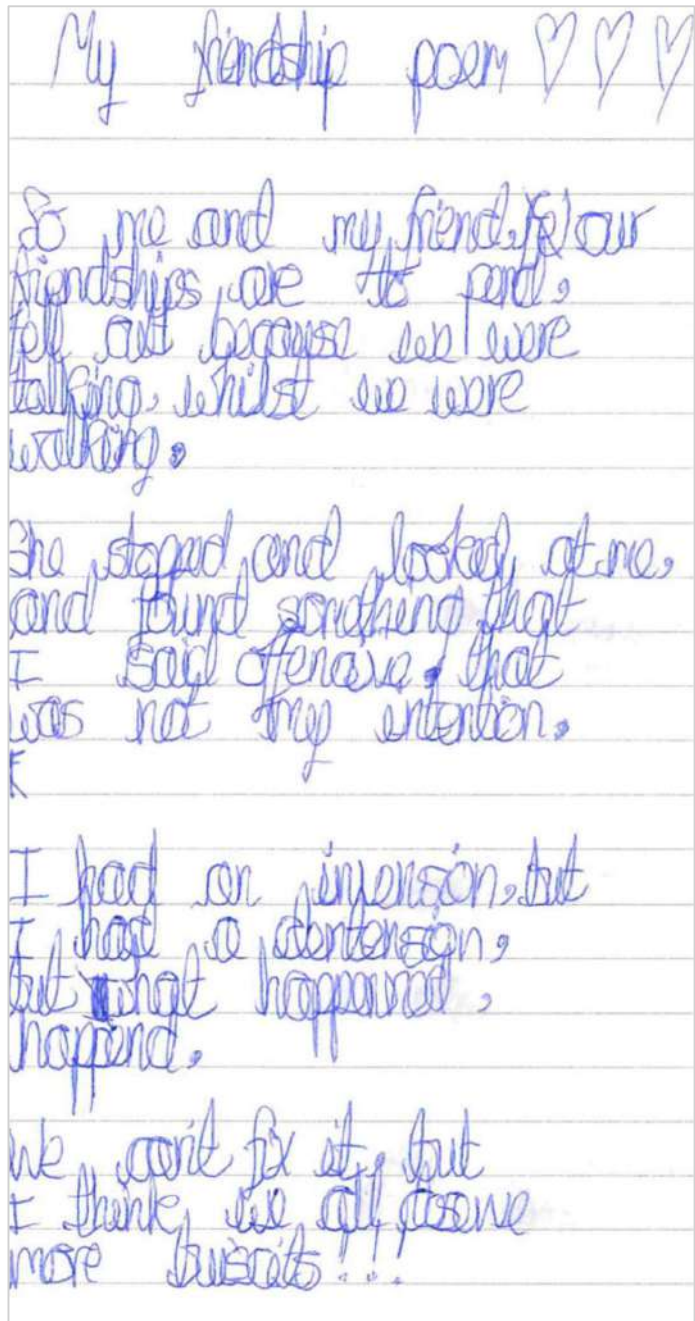 My friendship poem ♡ ♡ ♡
So me and my friend, our
friendships are to pend,
fell out because we were
talking, whilst we were
walking.
She stoped and looked at me,
and found somethend that
I said offensive, that
was not my intention.
I had an invension, but
I had a dentension,
but what happened,
happend.
We can't fix it, but
I think we all deserve
more buiscits!!!